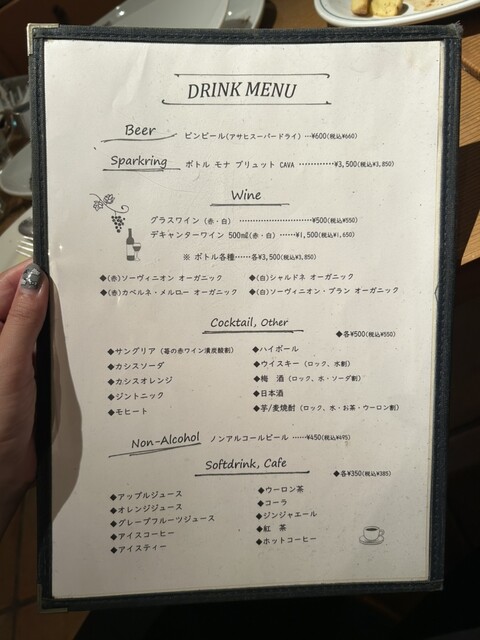 DRINK MENU
Beer ビンビール(アサヒスーパードライ) …¥600(税込¥660)
Sparkring ボトル モナ ブリュット CAVA …………¥3,500(税込¥3,850)
Wine
グラスワイン (赤・白) ……………………¥500(税込¥550)
デキャンターワイン 500㎖(赤・白) ……¥1,500(税込¥1,650)
※ ボトル各種……各¥3,500(税込¥3,850)
◆(赤)ソーヴィニオン オーガニック ◆(白)シャルドネ オーガニック
◆(赤)カベルネ・メルロー オーガニック ◆(白)ソーヴィニオン・ブラン オーガニック
Cocktail, Other
◆各¥500(税込¥550)
◆サングリア (苺の赤ワイン漬炭酸割) ◆ハイボール
◆カシスソーダ ◆ウイスキー (ロック、水割)
◆カシスオレンジ ◆梅 酒 (ロック、水・ソーダ割)
◆ジントニック ◆日本酒
◆モヒート ◆芋/麦焼酎 (ロック、水・お茶・ウーロン割)
Non-Alcohol ノンアルコールビール ……¥450(税込¥495)
Softdrink, Cafe
◆各¥350(税込¥385)
◆アップルジュース ◆ウーロン茶
◆オレンジジュース ◆コーラ
◆グレープフルーツジュース ◆ジンジャエール
◆アイスコーヒー ◆紅 茶
◆アイスティー ◆ホットコーヒー